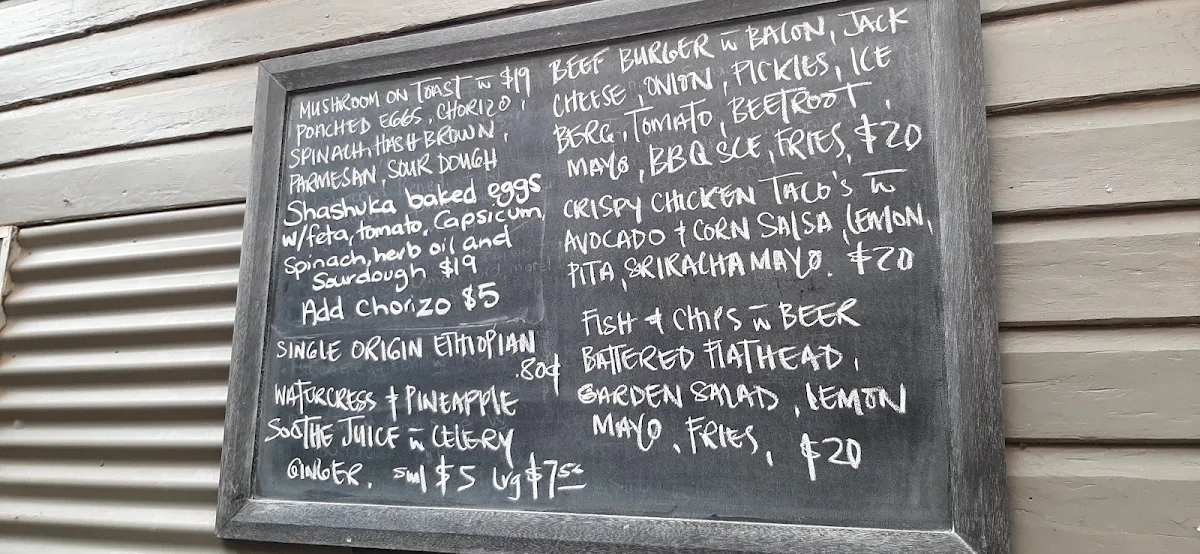 MUSHROOM ON TOAST w $19
POACHED EGGS, CHORIZO,
SPINACH, HASH BROWN,
PARMESAN, SOUR DOUGH
Shashuka baked eggs
w/feta, tomato, Capsicum,
Spinach, herb oil and
Sourdough $19
Add Chorizo $5
SINGLE ORIGIN ETHIOPIAN
.80¢
WATURCRESS & PINEAPPLE
SOOTHE JUICE w CELERY
GINGER. sml $5 Lrg $7.50
BEEF BURGER w BACON, JACK
CHEESE, ONION, PICKLES, ICE
BERG, TOMATO, BEETROOT,
MAYO, BBQ SCE, FRIES, $20
CRISPY CHICKEN TACO'S w
AVOCADO & CORN SALSA, LEMON,
PITA, SRIRACHA MAYO. $20
FISH & CHIPS w BEER
BATTERED FLATHEAD,
GARDEN SALAD, LEMON
MAYO, FRIES, $20